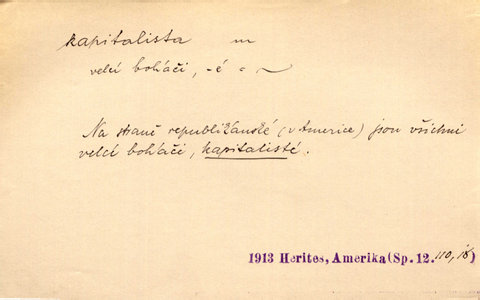 kapitalista m
velcí boháči, -é
Na straně republikánské (v Americe) jsou všichni
velcí boháči, kapitalisté.
1913 Herites, Amerika (Sp. 12. 110, 18)